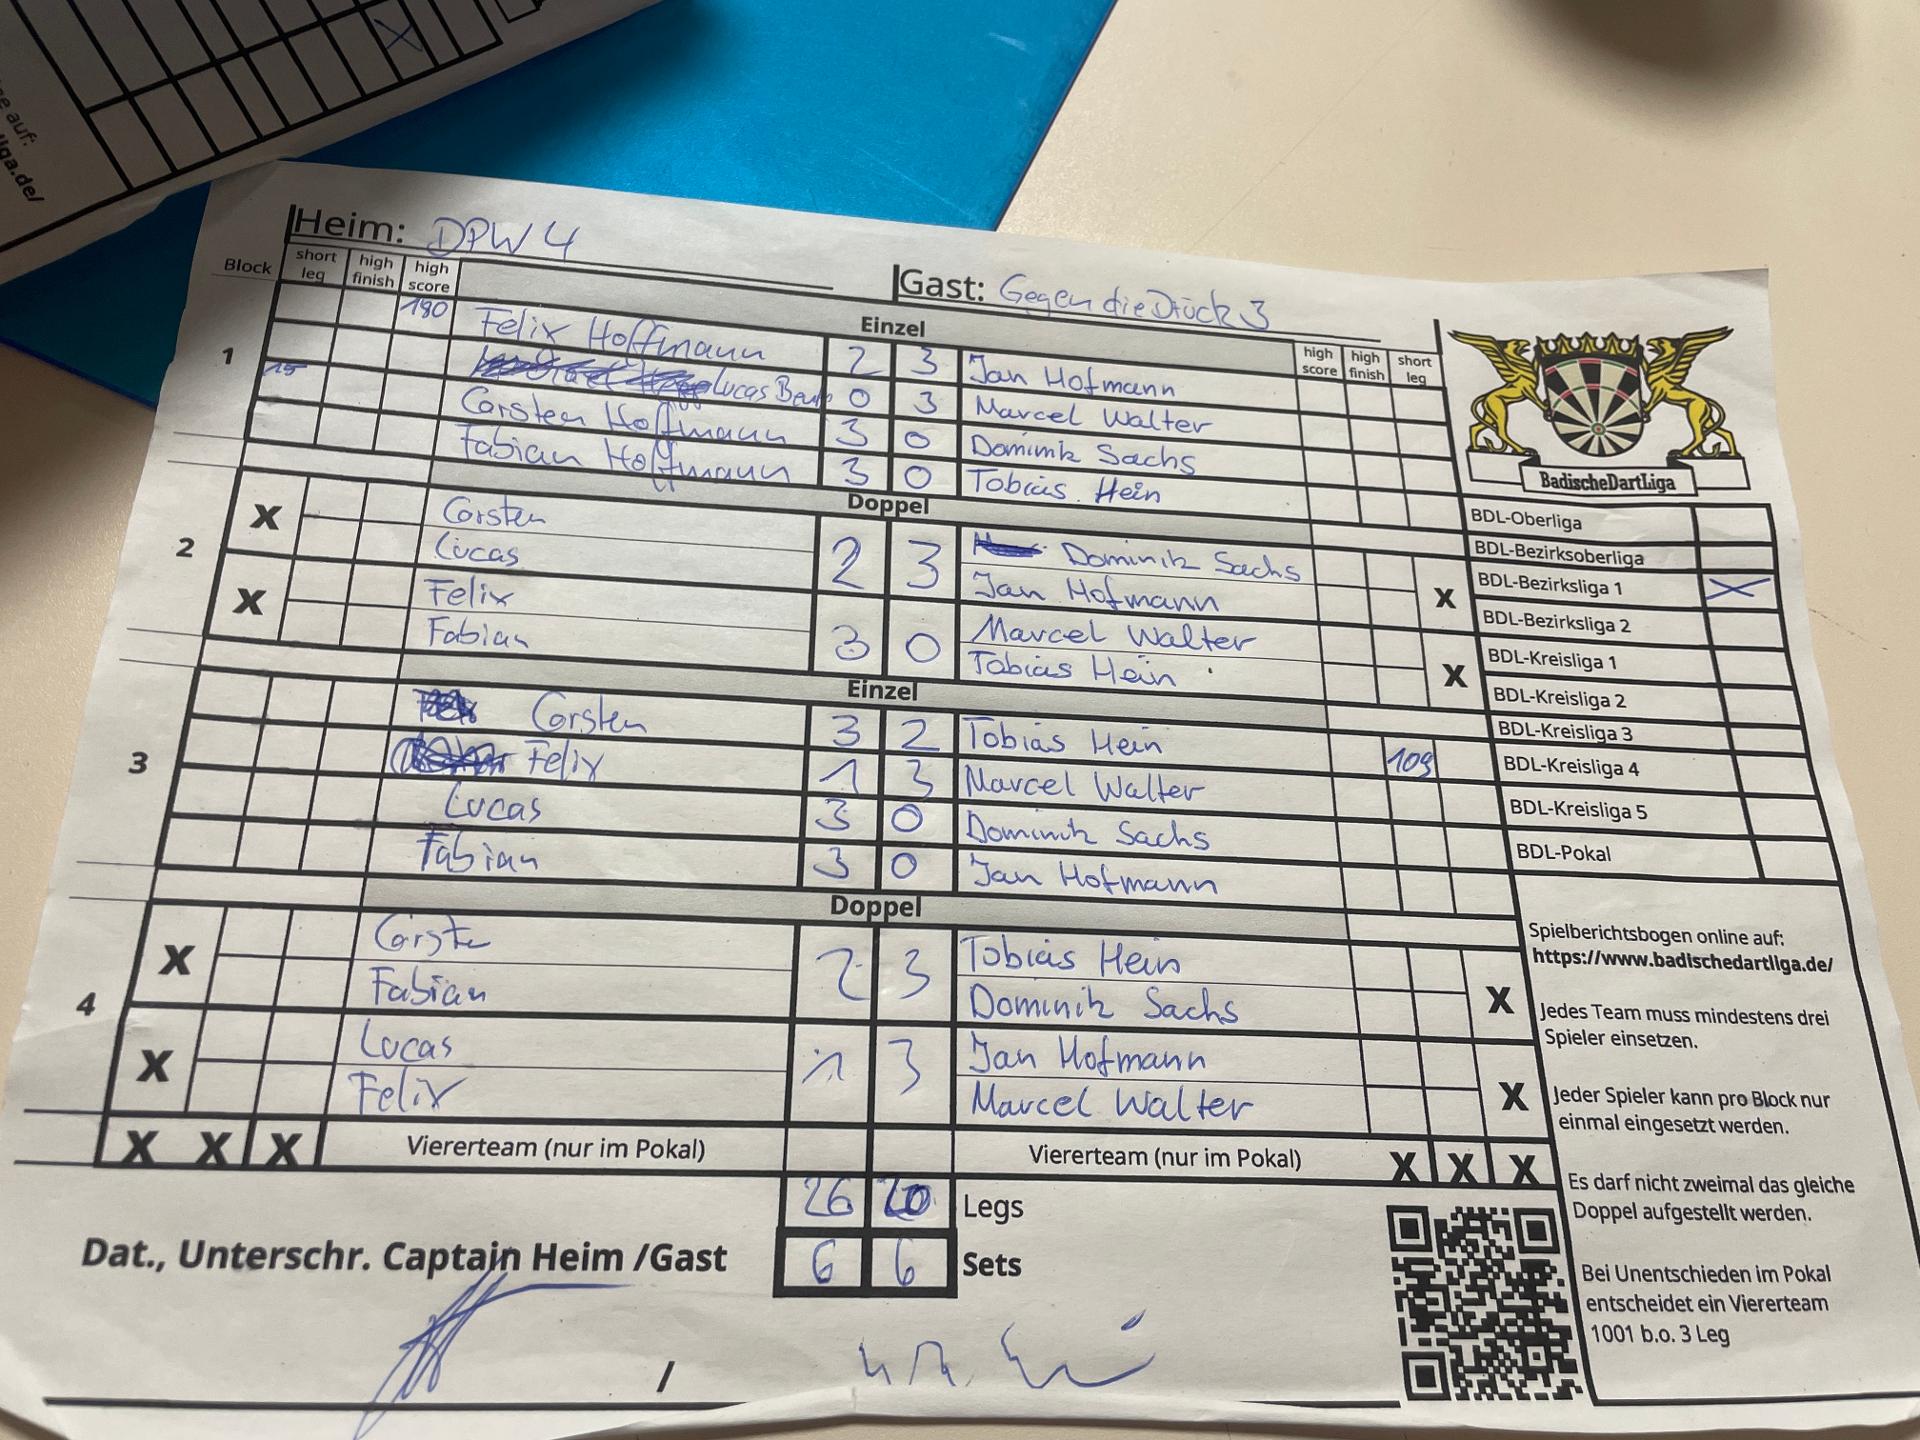 ge auf:
liga.de/
Heim: DPW 4
Gast: Gegen die Drück 3
Block short leg high finish high score
Einzel
high score high finish short leg
1
180 Felix Hoffmann 2 3 Jan Hofmann
Lucas 0 3 Marcel Walter
15 Carsten Hoffmann 3 0 Dominik Sachs
Fabian Hoffmann 3 0 Tobias Hein
Doppel
2
X Carsten 2 3 Dominik Sachs X
Lucas Jan Hofmann
X Felix 3 0 Marcel Walter X
Fabian Tobias Hein
Einzel
3
Carsten 3 2 Tobias Hein
Felix 1 3 Marcel Walter 109
Lucas 3 0 Dominik Sachs
Fabian 3 0 Jan Hofmann
Doppel
4
X Carste 2 3 Tobias Hein X
Fabian Dominik Sachs
X Lucas 1 3 Jan Hofmann X
Felix Marcel Walter
X X X Viererteam (nur im Pokal) Viererteam (nur im Pokal) X X X
26 20 Legs
6 6 Sets
Dat., Unterschr. Captain Heim /Gast
/
BadischeDartLiga
BDL-Oberliga
BDL-Bezirksoberliga
BDL-Bezirksliga 1 X
BDL-Bezirksliga 2
BDL-Kreisliga 1
BDL-Kreisliga 2
BDL-Kreisliga 3
BDL-Kreisliga 4
BDL-Kreisliga 5
BDL-Pokal
Spielberichtsbogen online auf:
https://www.badischedartliga.de/
Jedes Team muss mindestens drei
Spieler einsetzen.
Jeder Spieler kann pro Block nur
einmal eingesetzt werden.
Es darf nicht zweimal das gleiche
Doppel aufgestellt werden.
Bei Unentschieden im Pokal
entscheidet ein Viererteam
1001 b.o. 3 Leg